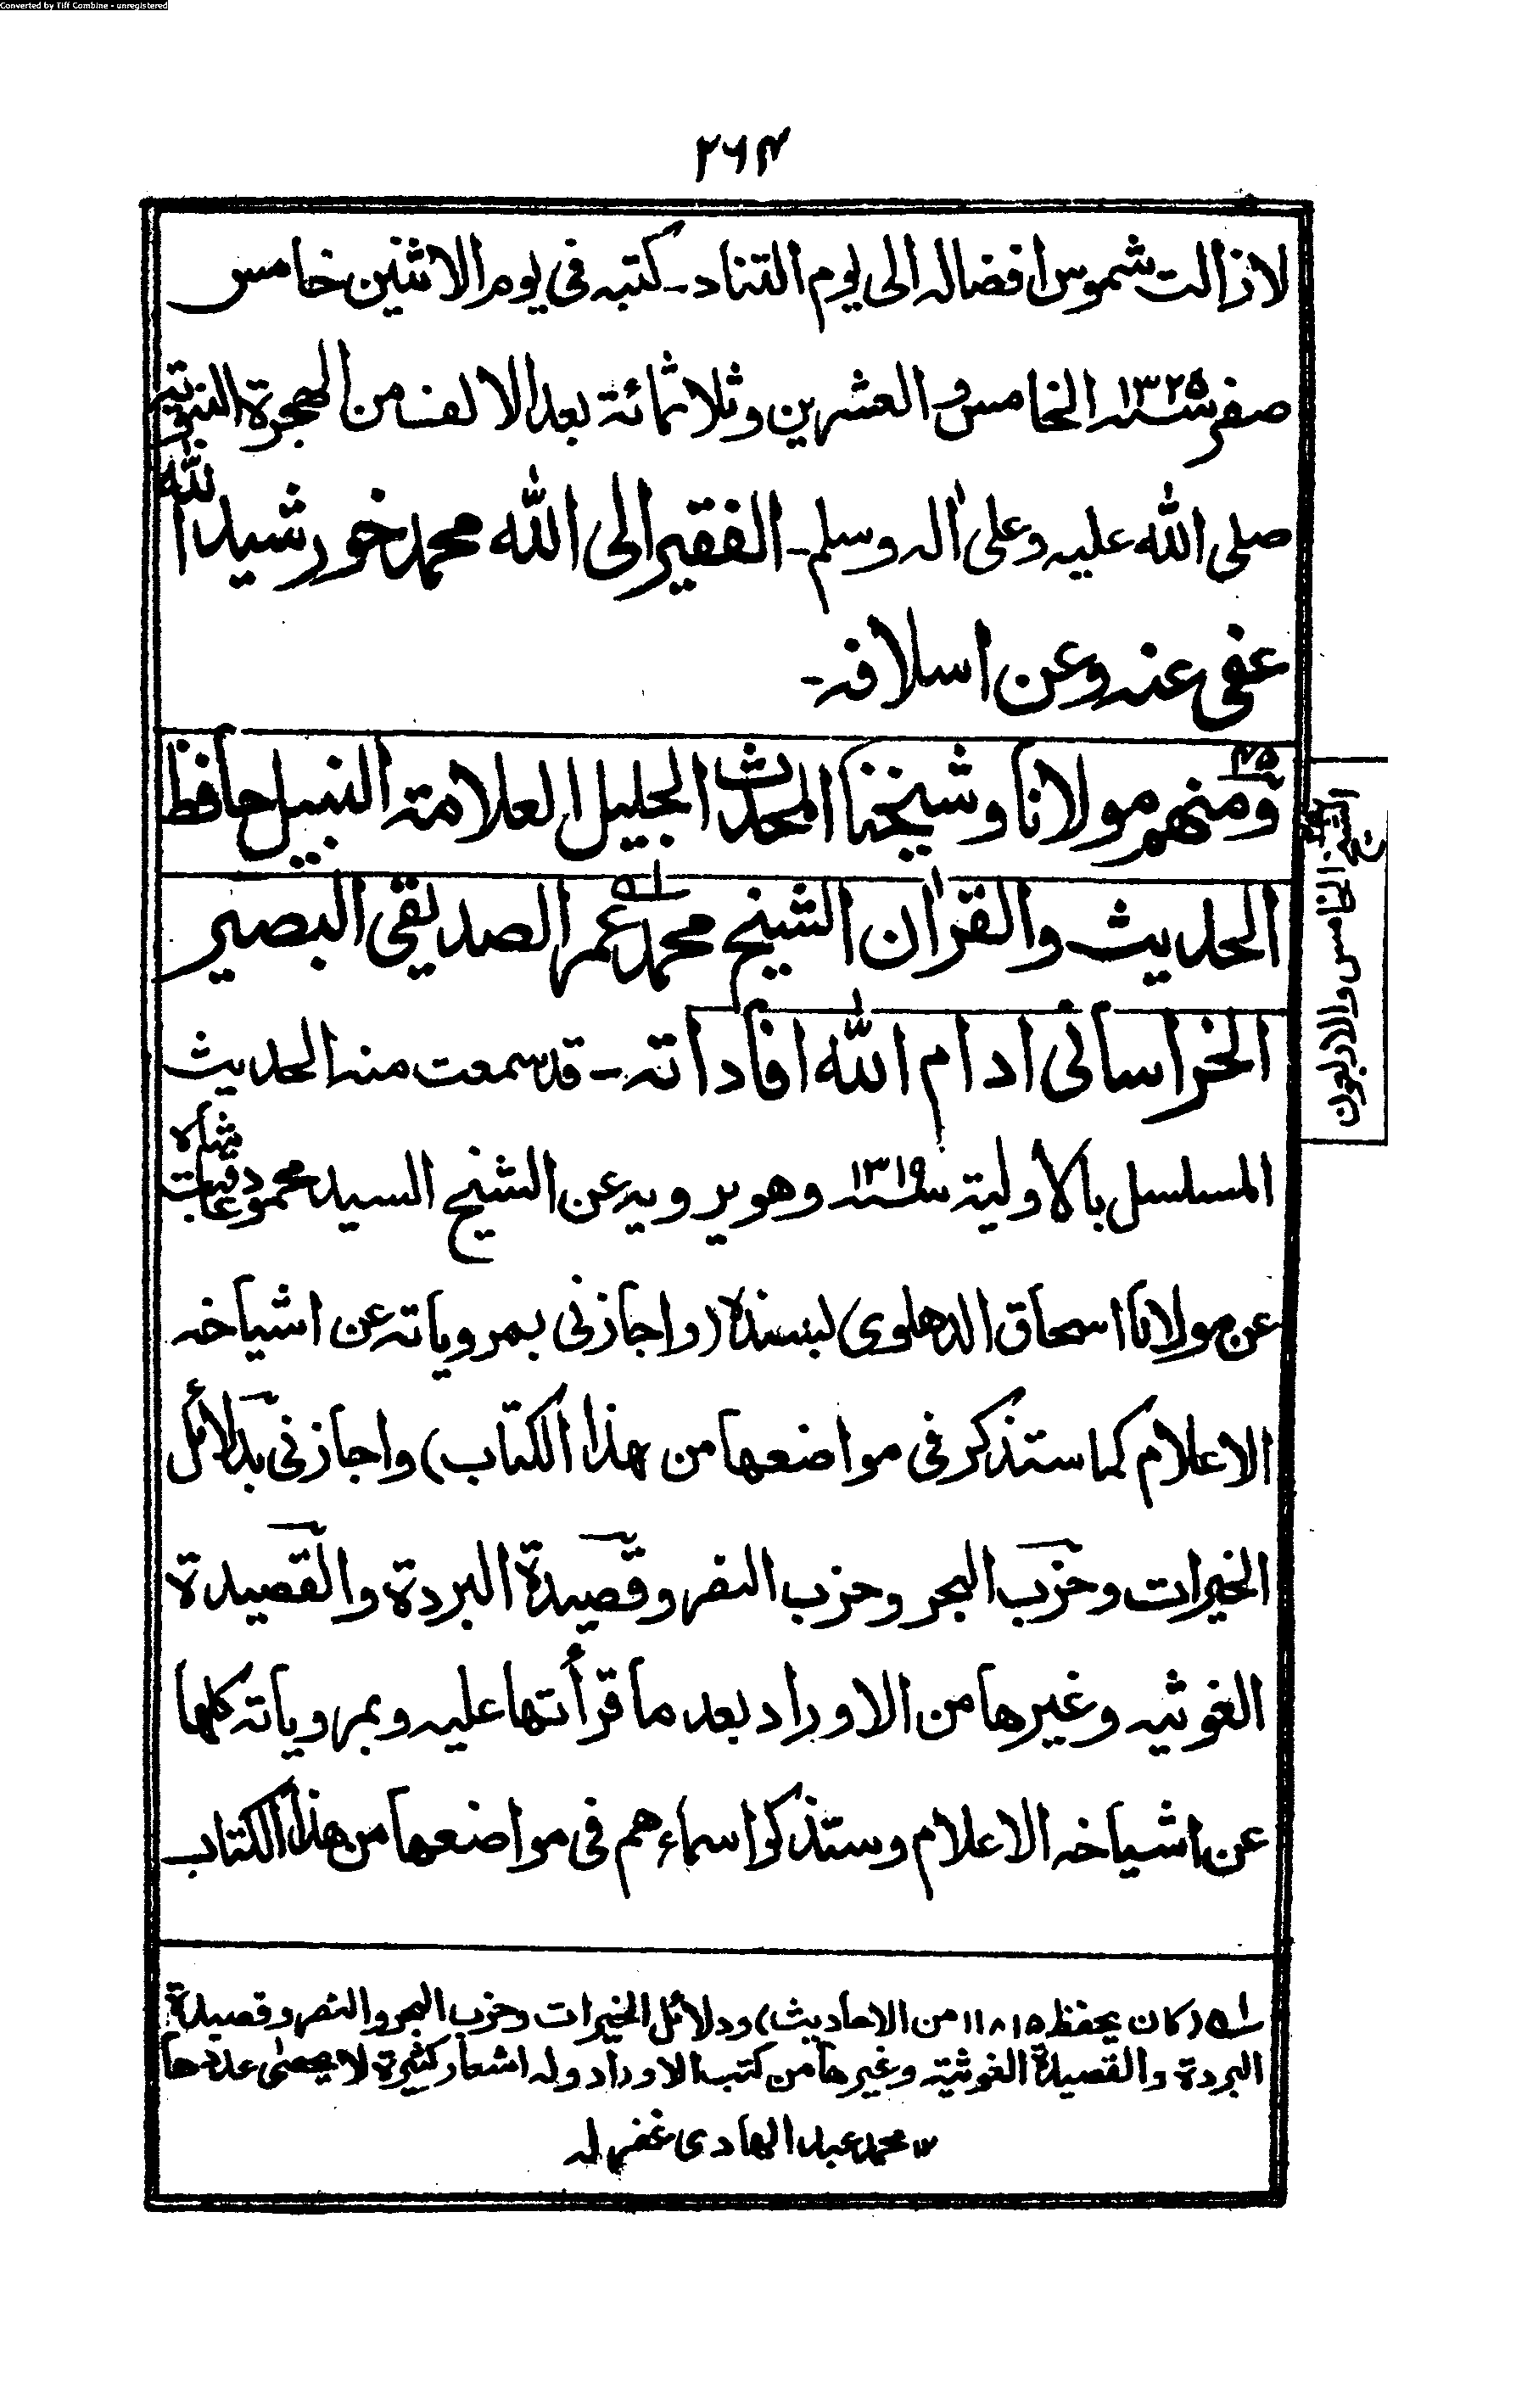 Converted by Tiff Combine - unregistered
۲۶۴
لازالت شموس افضاله الى يوم التناد - كتبه فى يوم الاثنين خامس
صفر سنه ۱۳۲۵ الخامس والعشرين وثلاثمائة بعد الالف من الهجرة النبوية
صلى الله عليه وعلى اله وسلم - الفقير الى الله محمد خورشيد الله
عفى عنه وعن اسلافه -
ومنهم مولانا وشيخنا المحدث الجليل العلامة النبيل حافظ
الحديث والقرآن الشيخ محمد عمر الصديقى البصير
الخراسانى ادام الله افاداته - قد سمعت منه الحديث
المسلسل بالاولية سنه ۱۳۱۹ وهو يرويه عن الشيخ السيد محمود شاه
عن مولانا اسحاق الدهلوى بسنده (واجازنى بمروياته عن اشياخه
الاعلام كما ستذكر فى مواضعها من هذا الكتاب) واجازنى بدلائل
الخيرات وحزب البحر وحزب النصر وقصيدة البردة والقصيدة
الغوثيه وغيرها من الاوراد بعد ما قرأتها عليه وبمروياته كلها
عن اشياخه الاعلام وستذكر اسماءهم فى مواضعها من هذا الكتاب
الشيخ الخامس والاربعون
له (كان يحفظ ۱۱۸۱۵ من الاحاديث) ودلائل الخيرات وحزب البحر والنصر وقصيدة
البردة والقصيدة الغوثية وغيرها من كتب الاوراد وله اشعار كثيرة لا يحصى عددها
۱۲ محمد عبد الهادى غفر له